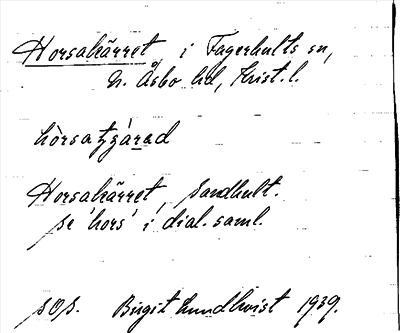 Horsakärret i Fagerhults sn,
N. Åsbo hd, Krist. l.
Horsakärret, Sandhult.
se 'hors' i dial. saml.
Birgit Lundkvist 1939.